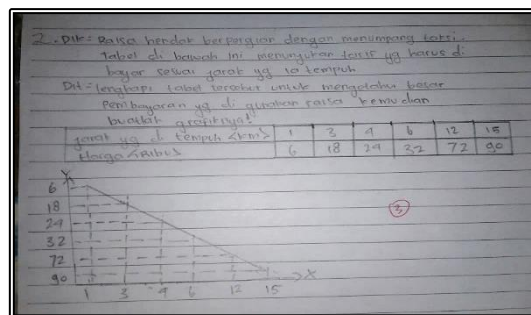 2. Dik = Raisa hendak berpergian dengan menumpang taksi.
Tabel di bawah ini menunjukan taris yg harus di
bayar sesuai jarak yg ia tempuh
Dit = lengkapi tabel tersebut untuk mengetahui besar
Pembayaran yg di gunakan raisa kemudian
buatlah grafiknya!
jarak yg di tempuh <km> 1 3 4 6 12 15
Harga <Ribu> 6 18 24 32 72 90
Y
6
18
24
32
72
90
3
X
1 3 4 6 12 15